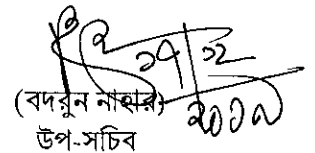 ২৭/১২
২০১৭
(বদরুন নাহার)
উপ-সচিব